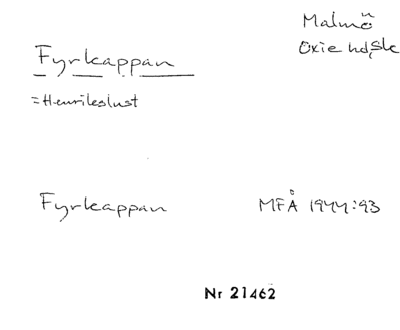 Malmö
Oxie hd, Sk
Fyrkappan
= Henrikslust
Fyrkappan MFÅ 1944:93
Nr 21462